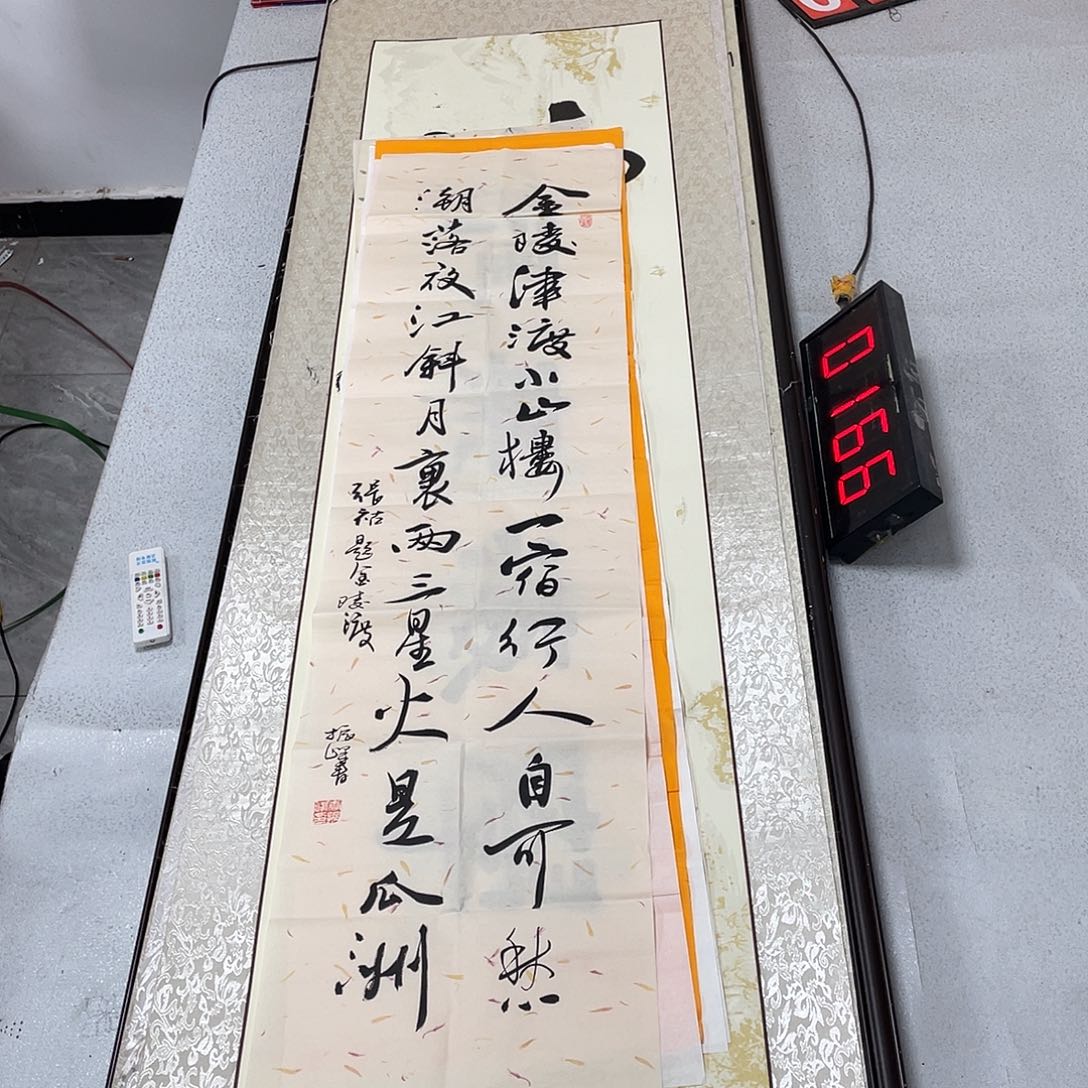 金陵津渡小山樓一宿行人自可愁
潮落夜江斜月裏两三星火是瓜洲
張祜題金陵渡
振 書
0166